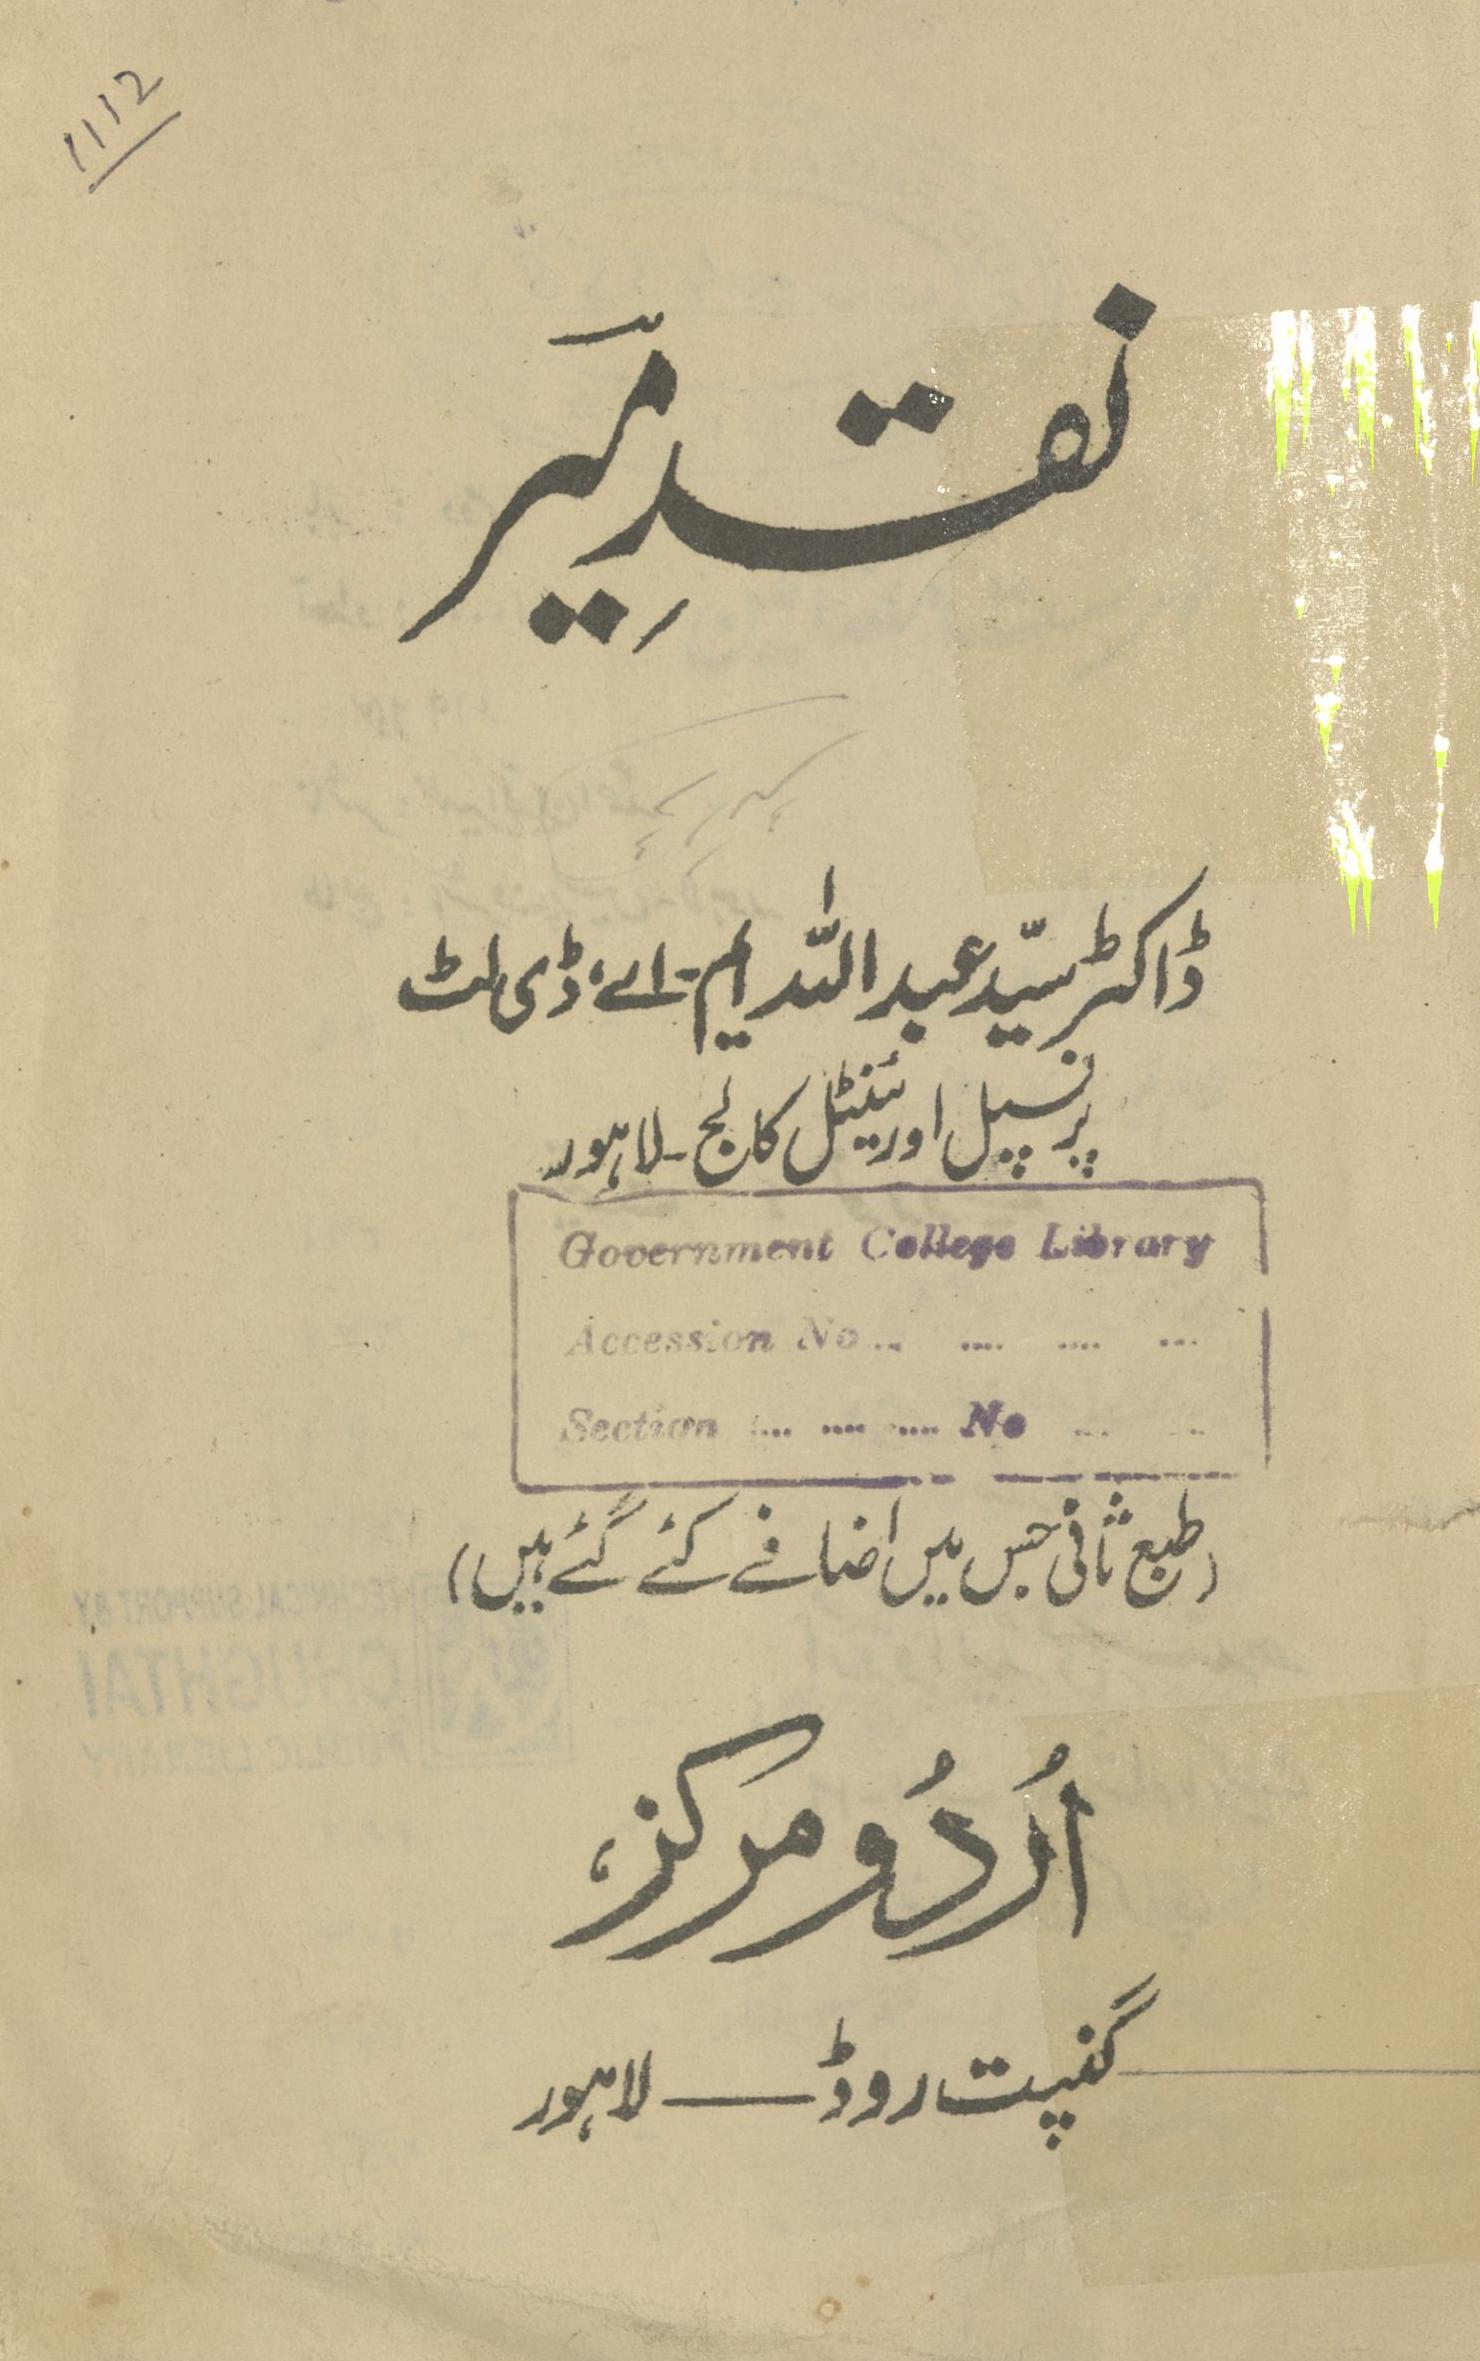 1112
نقدِ میرؔ
ڈاکٹر سیّد عبداللہ ایم-اے، ڈی لٹ
پرنسپل اورئینٹل کالج-لاہور
Government College Library
Accession No... .... .... ...
Section .... .... .... No ... ...
(طبع ثانی جس میں اضافے کئے گئے ہیں)
اُردُو مرکز،
گنپت روڈ — لاہور
TECHNICAL SUPPORT BY
CHUGHTAI
PUBLIC LIBRARY